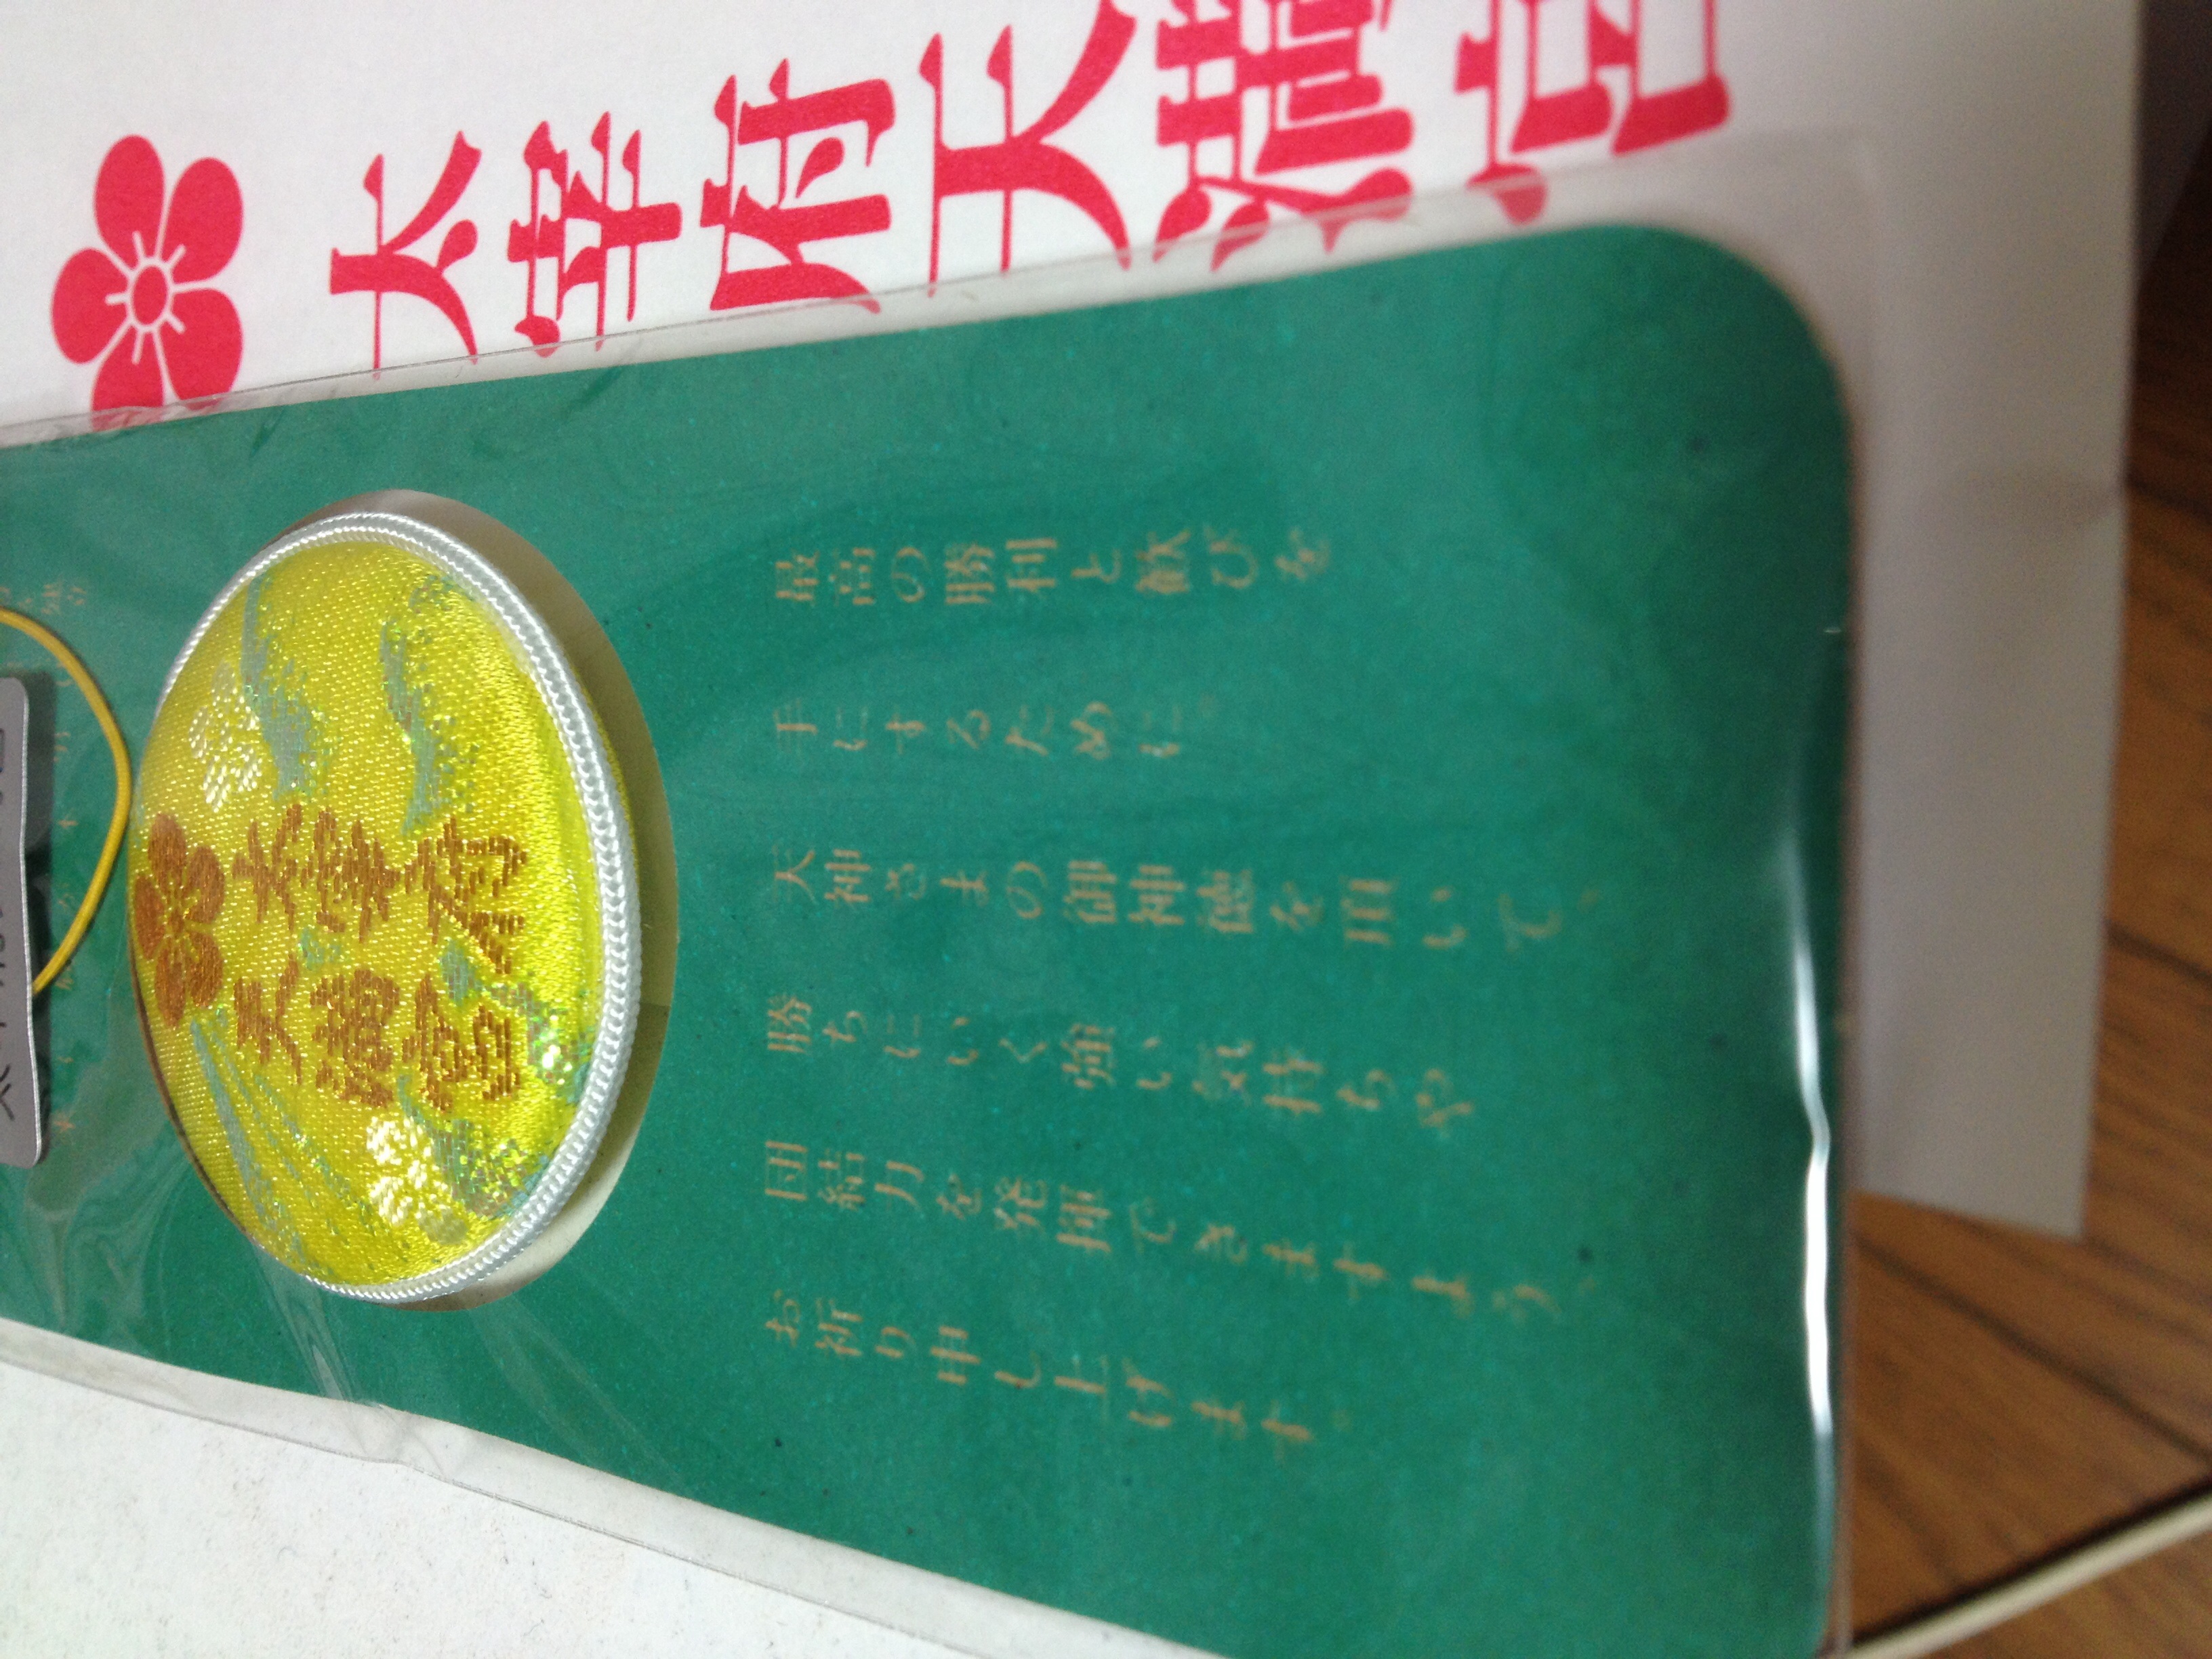 太宰府天満宮
太宰府
天満宮
最高の勝利と歓びを
手にするために。
天神さまの御神徳を頂いて、
勝ちにいく強い気持ちや
団結力を発揮できますよう、
お祈り申し上げます。